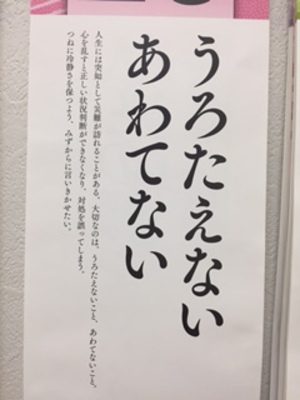 うろたえない
あわてない
人生には突如として災難が訪れることがある。大切なのは、うろたえないこと、あわてないこと。
心を乱すと正しい状況判断ができなくなり、対処を誤ってしまう。
つねに冷静さを保つよう、みずからに言いきかせたい。